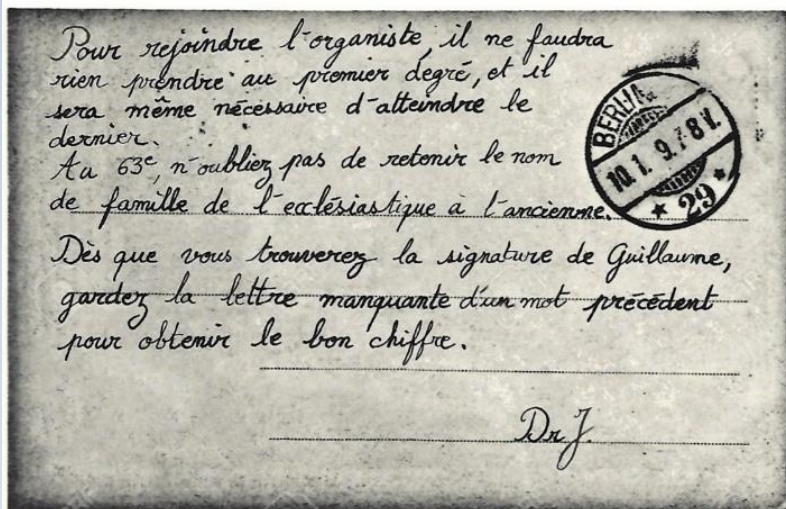 Pour rejoindre l'organiste, il ne faudra
rien prendre au premier degré, et il
sera même nécessaire d'atteindre le
dernier.
Au 63e, n'oubliez pas de retenir le nom
de famille de l'ecclésiastique à l'ancienne.
Dès que vous trouverez la signature de Guillaume,
gardez la lettre manquante d'un mot précédent
pour obtenir le bon chiffre.
Dr J.
BERLIN
10.1.9.7-8V.
* 29 *